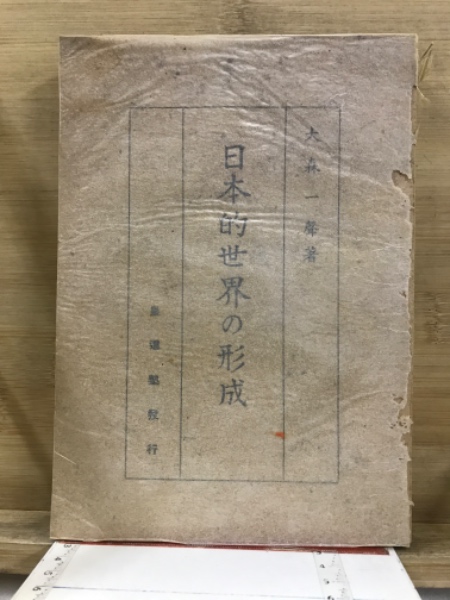 大森一聲著
日本的世界の形成
皇道塾發行